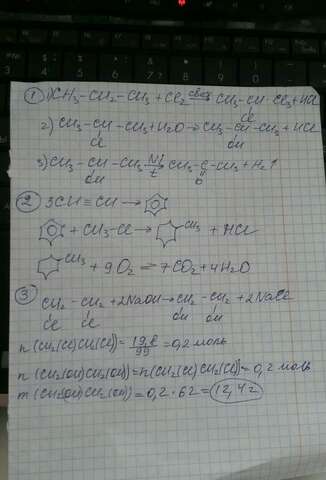 ① 1) CH₃-CH₂-CH₃ + Cl₂ свет→ CH₃-CH-CH₃ + HCl
Cl
2) CH₃-CH-CH₃ + H₂O → CH₃-CH-CH₃ + HCl
Cl OH
3) CH₃-CH-CH₃ Ni→ t CH₃-C-CH₃ + H₂↑
OH O
② 3CH≡CH →
+ CH₃-Cl → CH₃ + HCl
CH₃ + 9O₂ = 7CO₂ + 4H₂O
③ CH₂-CH₂ + 2NaOH → CH₂-CH₂ + 2NaCl
Cl Cl OH OH
n(CH₂(Cl)CH₂(Cl)) = 19,8/99 = 0,2 моль
n(CH₂(OH)CH₂(OH)) = n(CH₂(Cl)CH₂(Cl)) = 0,2 моль
m(CH₂(OH)CH₂(OH)) = 0,2 · 62 = 12,4 г